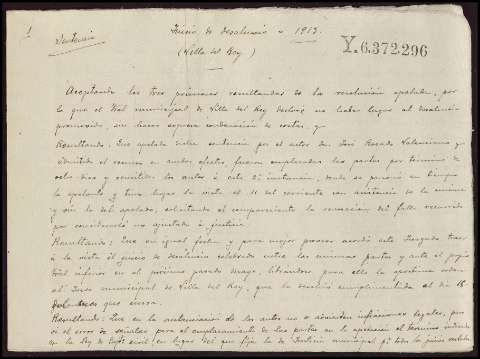 1
Sentencia
Juicio de desahucio = 1913.
(Lilla del Rey)
Y.6.372.296
Aceptando los tres primeros resultandos de la resolución apelada, por
la que el Tbal municipal de Lilla del Rey declaró no haber lugar al desahucio
promovido, sin hacer expresa condenación de costas; y
Resultando: Que apelada dicha sentencia por el actor don José Rosado y
admitido el recurso en ambos efectos fueron emplazadas las partes por término de
ocho dias y remitidos los autos á esta 2ª instancia, donde se personó en tiempo
la apelante y tuvo lugar la vista el 11 del corriente con asistencia de la misma
y sin la del apelado, solicitando el compareciente la revocación del fallo recurrido
por considerarlo no ajustado á justicia
Resultando: Que en igual fecha y para mejor proveer acordó este Juzgado traer
á la vista el juicio de desahucio celebrado entre las mismas partes y ante el propio
tbal inferior en el próximo pasado mayo, librandose para ello la oportuna orden
al Juez municipal de Lilla del Rey, que la devolvió cumplimentada el dia 15
del mes que cursa.
Resultando: Que en la sustanciación de los autos no se advierten infracciones legales, pero
si el error de señalar para el emplazamiento de las partes en la apelación el término
en la Ley de Enjto civil en lugar del que fija la de Justicia municipal pª toda la